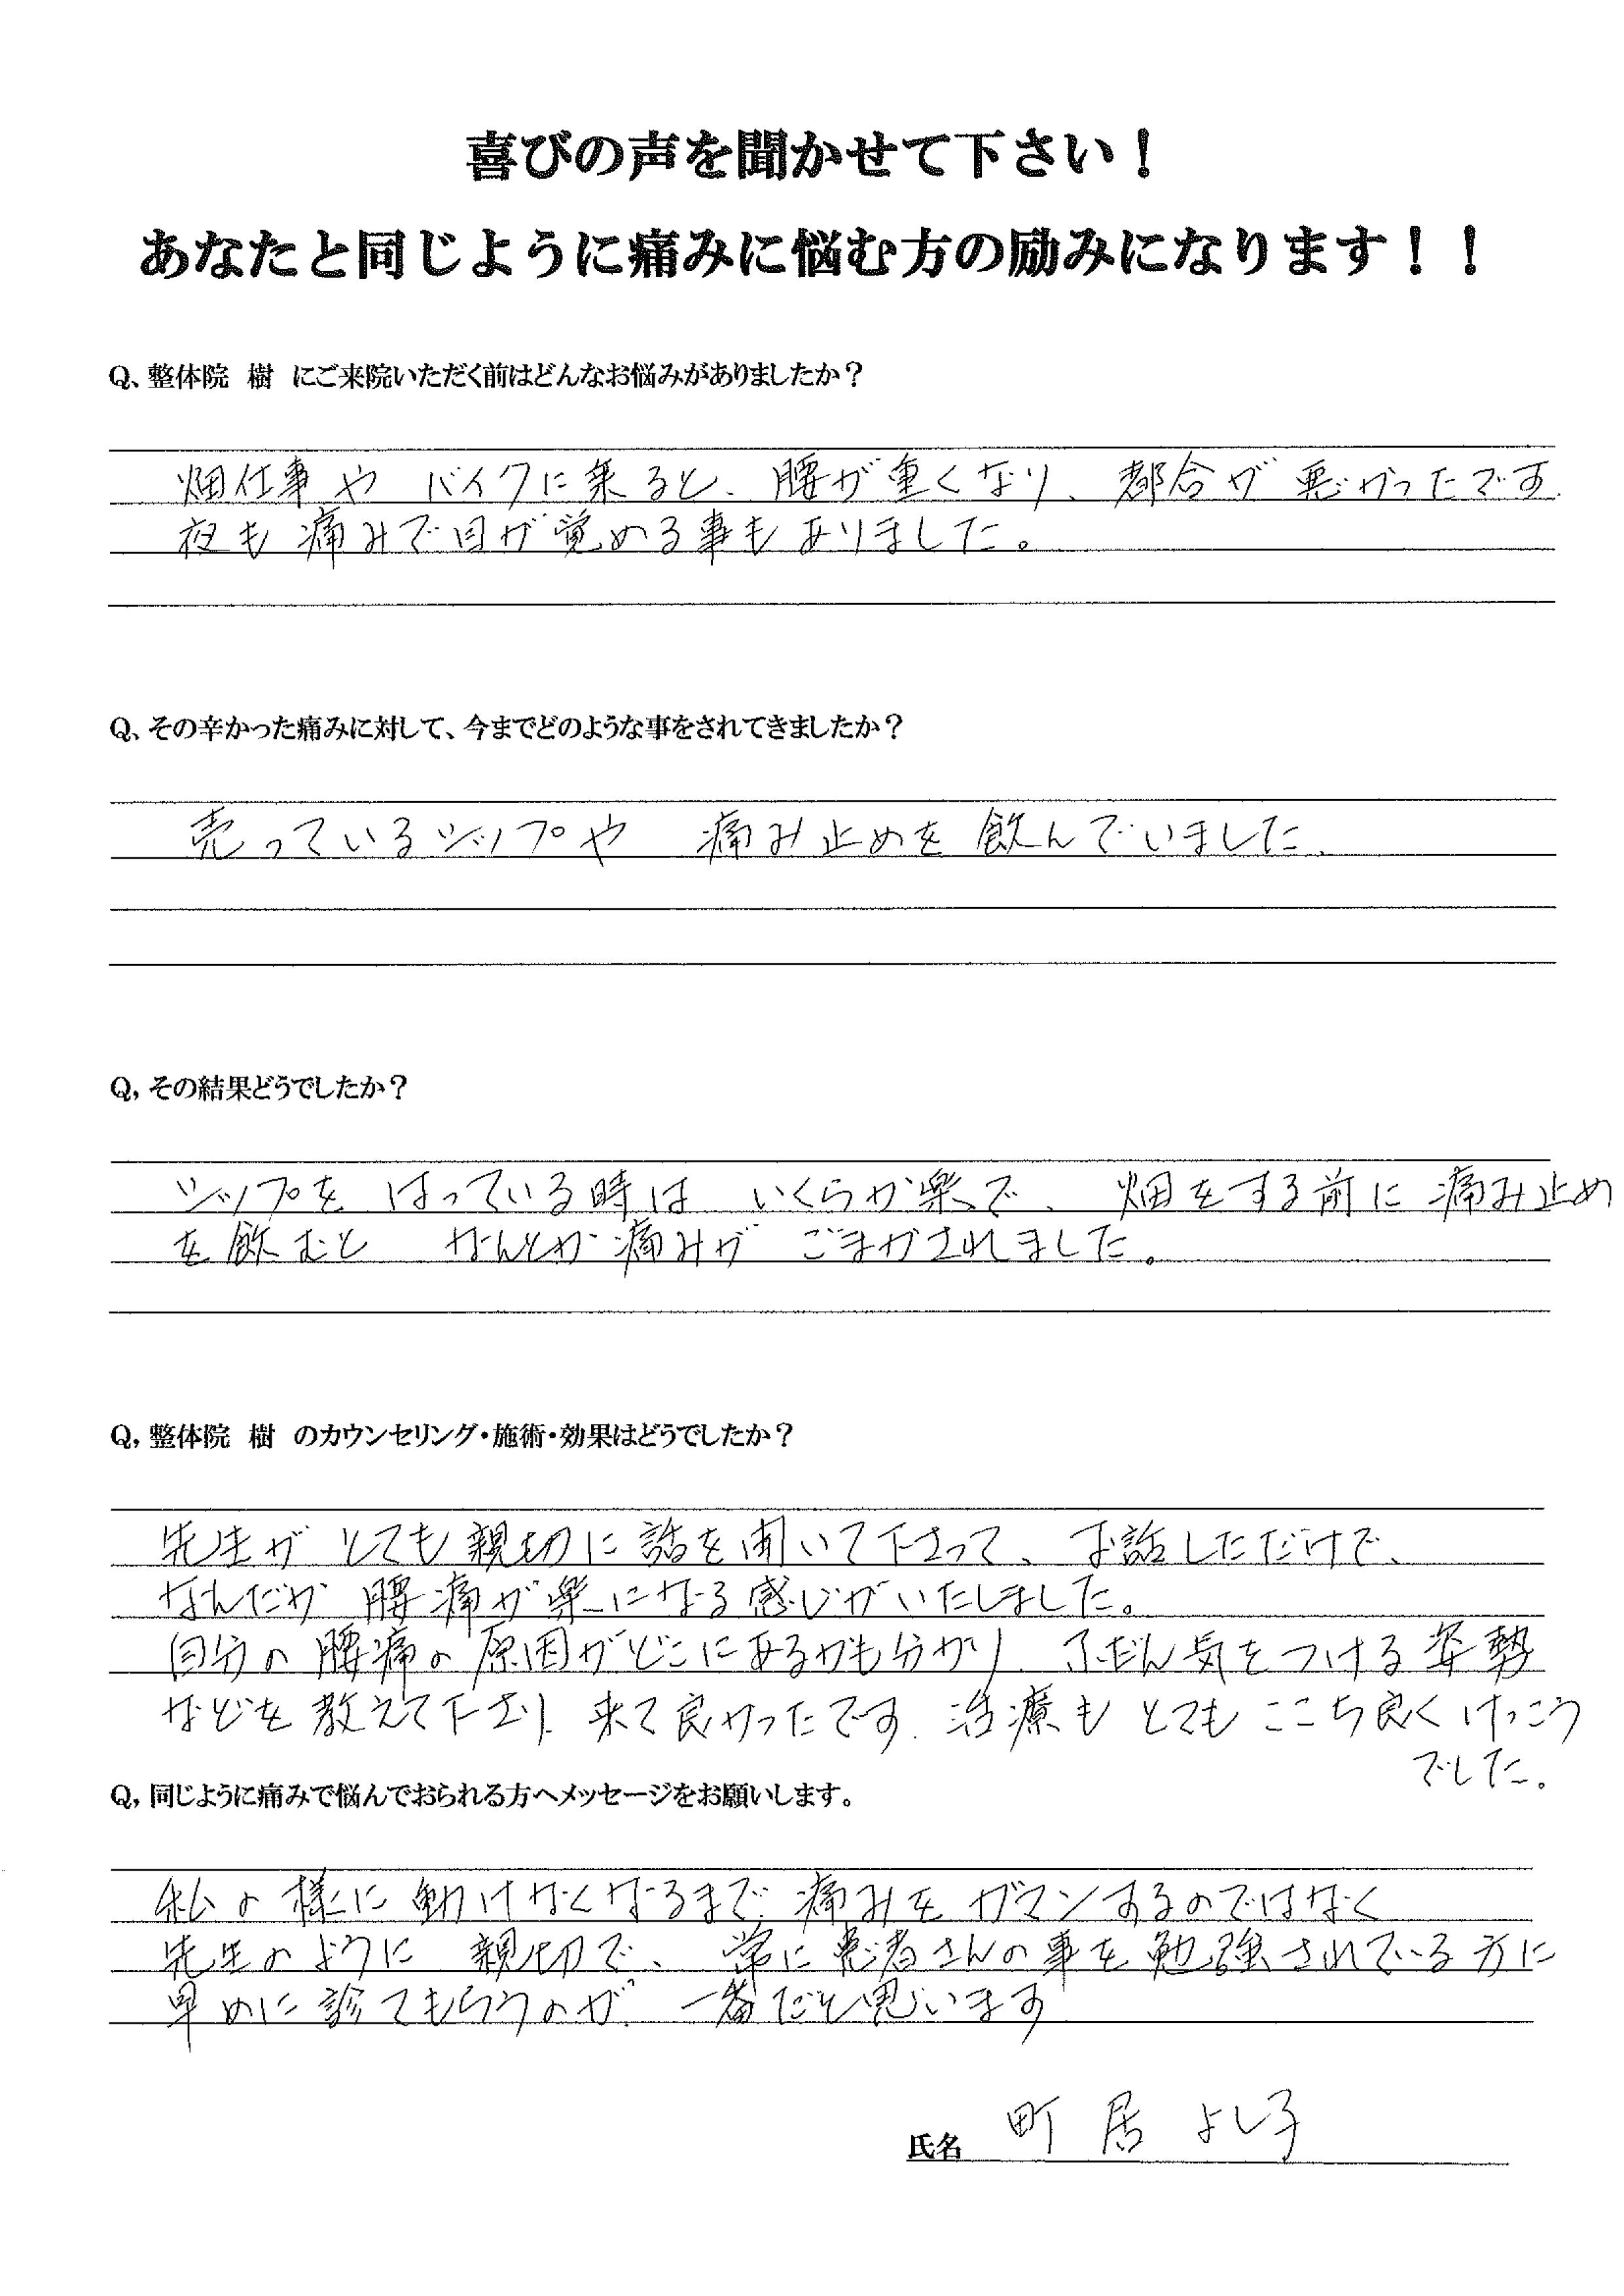 喜びの声を聞かせて下さい！
あなたと同じように痛みに悩む方の励みになります！！
Q、整体院　樹　にご来院いただく前はどんなお悩みがありましたか？
畑仕事や バイクに乗ると、腰が重くなり、都合が悪かったです.
夜も痛みで目が覚める事もありました。
Q、その辛かった痛みに対して、今までどのような事をされてきましたか？
売っているシップや 痛み止めを飲んでいました.
Q，その結果どうでしたか？
シップを はっている時は いくらか楽で、畑をする前に痛み止め
を飲むと なんとか痛みが ごまかされました。
Q，整体院　樹　のカウンセリング・施術・効果はどうでしたか？
先生が とても親切に話を聞いて下さって、お話しただけで、
なんだか 腰痛が楽になる感じがいたしました。
自分の腰痛の原因がどこにあるかも分かり、ふだん気をつける姿勢
などを教えて下さり、来て良かったです. 治療も とても ここち良くけっこう
でした。
Q，同じように痛みで悩んでおられる方へメッセージをお願いします。
私の様に動けなくなるまで痛みをガマンするのではなく
先生のように 親切で、常に患者さんの事を勉強されている方に
早めに診てもらうのが、一番だと思います
氏名 町居よし子